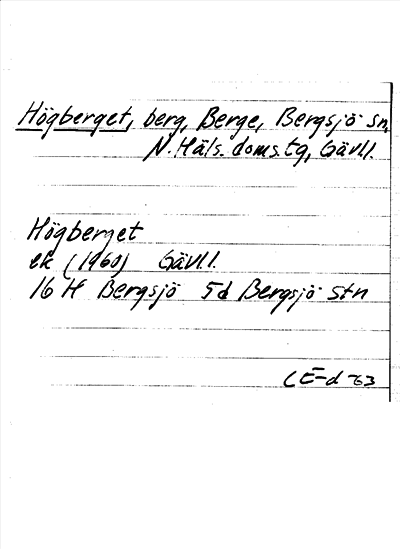 Högberget, berg, Berge, Bergsjö sn,
N. Häls. doms.tg, Gävl.l.
Högberget
ek (1960) Gävl.l.
16 H Bergsjö 5d Bergsjö stn
CE-d -63